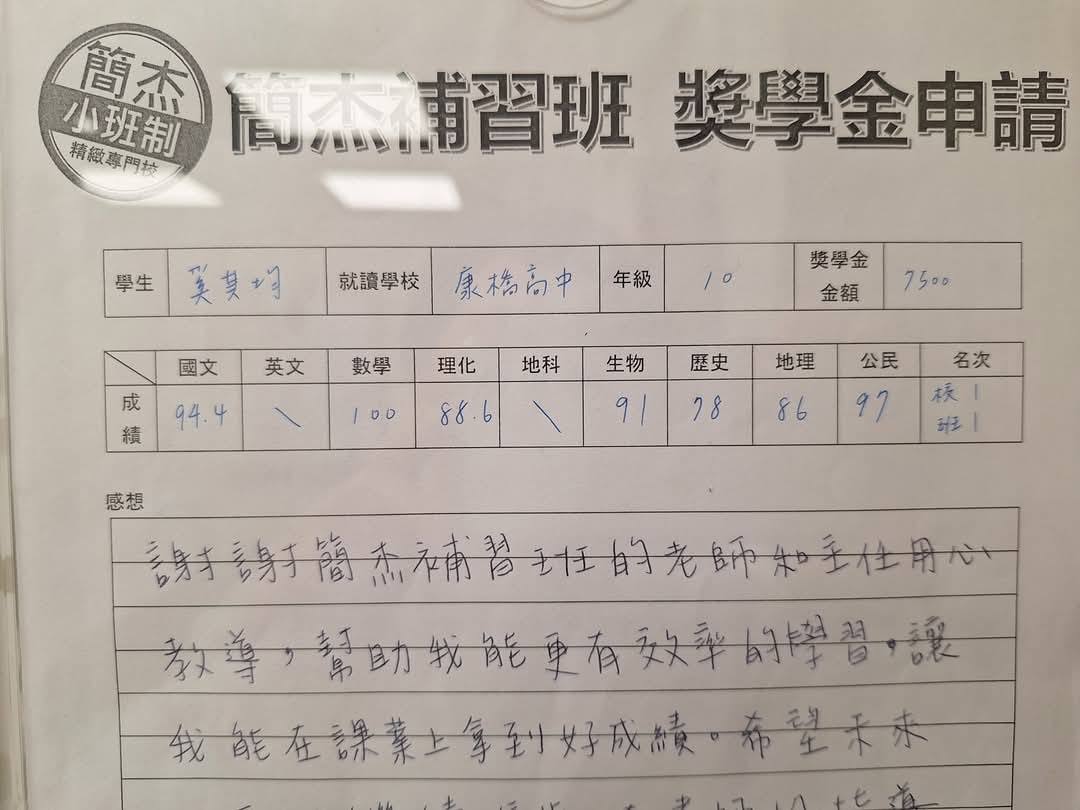 簡杰
小班制
精緻專門校
簡杰補習班 獎學金申請
學生 奚其均 就讀學校 康橋高中 年級 10 獎學金金額 7500
國文 英文 數學 理化 地科 生物 歷史 地理 公民 名次
成績 94.4 \ 100 88.6 \ 91 78 86 97 校1 班1
感想
謝謝簡杰補習班的老師和主任用心
教導,幫助我能更有效率的學習。讓
我能在課業上拿到好成績。希望未來